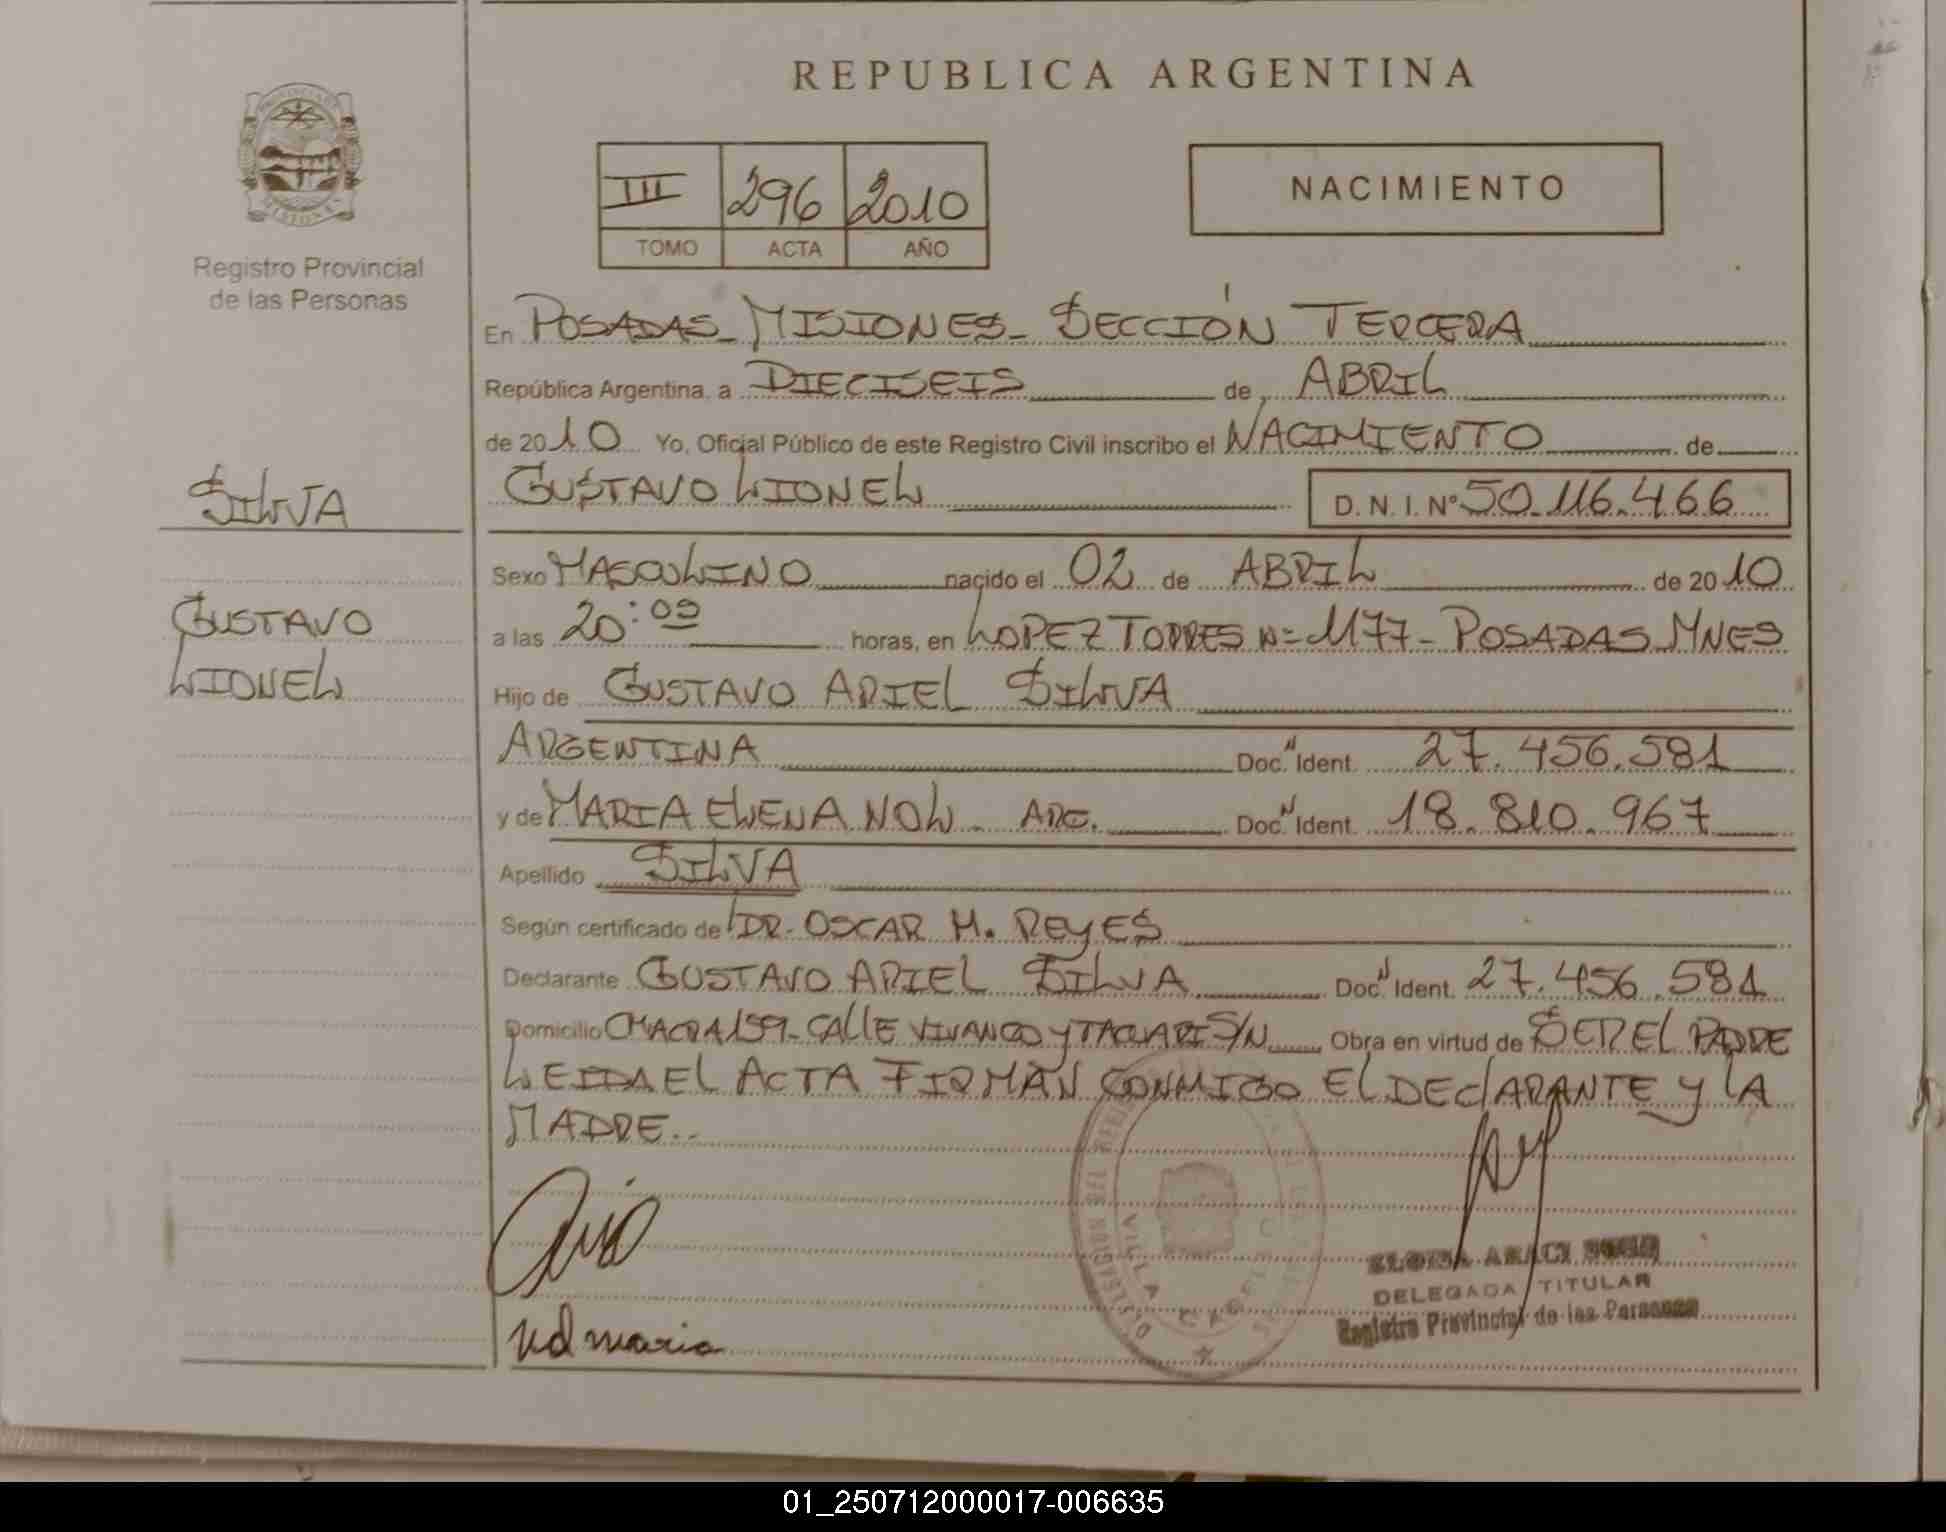 REPUBLICA ARGENTINA
III 296 2010
TOMO ACTA AÑO
NACIMIENTO
Registro Provincial
de las Personas
SILVA
GUSTAVO
LIONEL
En POSADAS - MISIONES - SECCIÓN TERCERA
República Argentina, a DIECISEIS de ABRIL
de 2010 Yo, Oficial Público de este Registro Civil inscribo el NACIMIENTO de
GUSTAVO LIONEL D.N.I. Nº 50.116.466
Sexo MASCULINO nacido el 02 de ABRIL de 2010
a las 20:00 horas, en LOPEZ TORRES Nº 1177 - POSADAS MNES
Hijo de GUSTAVO ARIEL SILVA
ARGENTINA Doc. N Ident. 27.456.581
y de MARIA ELENA NOL. ARG. Doc. N Ident. 18.810.967
Apellido SILVA
Según certificado de DR. OSCAR M. REYES
Declarante GUSTAVO ARIEL SILVA Doc. N Ident. 27.456.581
Domicilio CHACRA 159 - CALLE VIVANCO Y TACUARI S/N Obra en virtud de SER EL PADRE
LEIDA EL ACTA FIRMAN CONMIGO EL DECLARANTE Y LA
MADRE..
VILLA CABELLO
ELOISA ARACI
DELEGADA TITULAR
Registro Provincial de las Personas
maria
01_250712000017-006635